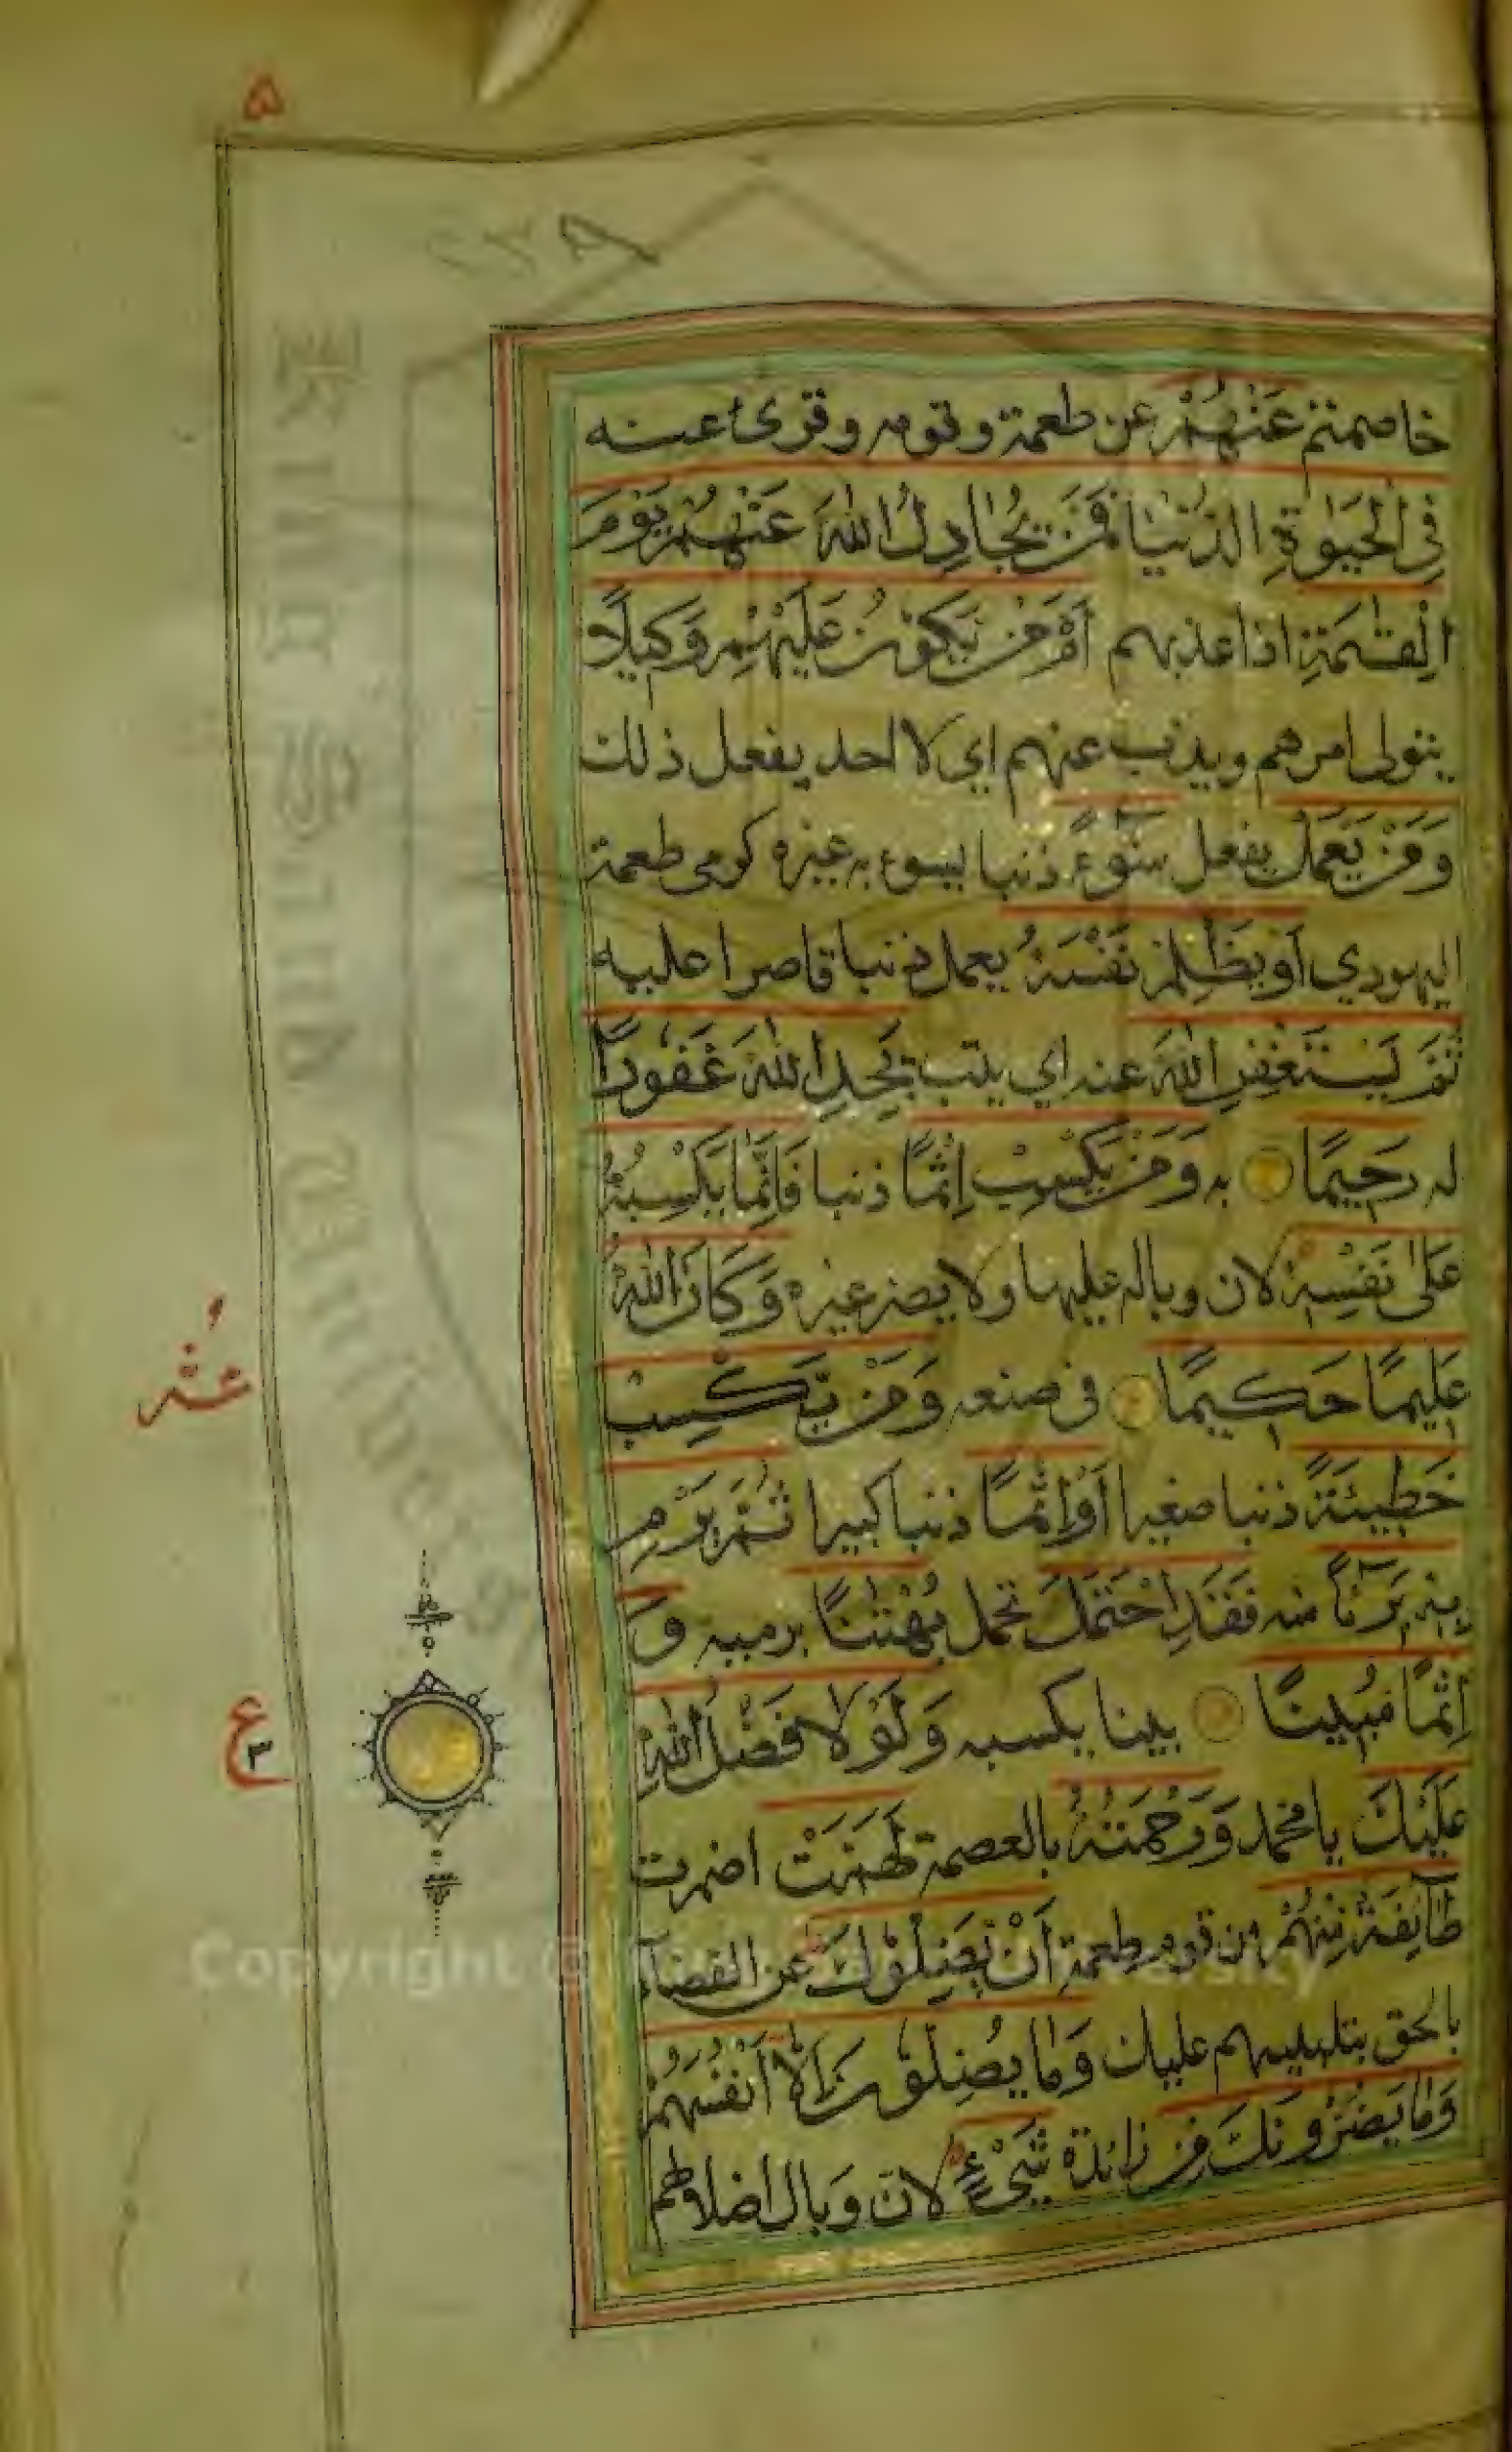 ۵
خاصمتم عَنْهُمْ عن طعمة وقومه وقرئ عنه
فِي الْحَيٰوةِ الدُّنْيَا فَمَنْ يُّجَادِلُ اللّٰهَ عَنْهُمْ يَوْمَ
الْقِيٰمَةِ اذا عذبهم اَمْ مَّنْ يَّكُوْنُ عَلَيْهِمْ وَكِيْلًا
يتولى امرهم ويذب عنهم اي لا احد يفعل ذلك
وَمَنْ يَّعْمَلْ يفعل سُوْٓءً ذنبا يسوء به غيره كرمي طعمة
اليهودي اَوْ يَظْلِمْ نَفْسَهٗ يعمل ذنبا قاصرا عليه
ثُمَّ يَسْتَغْفِرِ اللّٰهَ عنه اي يتب يَجِدِ اللّٰهَ غَفُوْرًا
له رَحِيْمًا به وَمَنْ يَّكْسِبْ اِثْمًا ذنبا فَاِنَّمَا يَكْسِبُهٗ
عَلٰى نَفْسِهٖ لان وباله عليها ولا يضر غيره وَكَانَ اللّٰهُ
عَلِيْمًا حَكِيْمًا في صنعه وَمَنْ يَّكْسِبْ
خَطِيْٓئَةً ذنبا صغيرا اَوْ اِثْمًا ذنبا كبيرا ثُمَّ يَرْمِ
بِهٖ بَرِيْٓئًا منه فَقَدِ احْتَمَلَ تحمل بُهْتَانًا برميه وَّ
اِثْمًا مُّبِيْنًا بينا بكسبه وَلَوْلَا فَضْلُ اللّٰهِ
عَلَيْكَ يا محمد وَرَحْمَتُهٗ بالعصمة لَهَمَّتْ اضمرت
طَآئِفَةٌ مِّنْهُمْ من قوم طعمة اَنْ يُّضِلُّوْكَ عن القضآء
بالحق بتلبيسهم عليك وَمَا يُضِلُّوْنَ اِلَّا اَنْفُسَهُمْ
وَمَا يَضُرُّوْنَكَ مِنْ زائدة شَيْءٍ لان وبال اضلالهم
ع
٣
Copyright ©